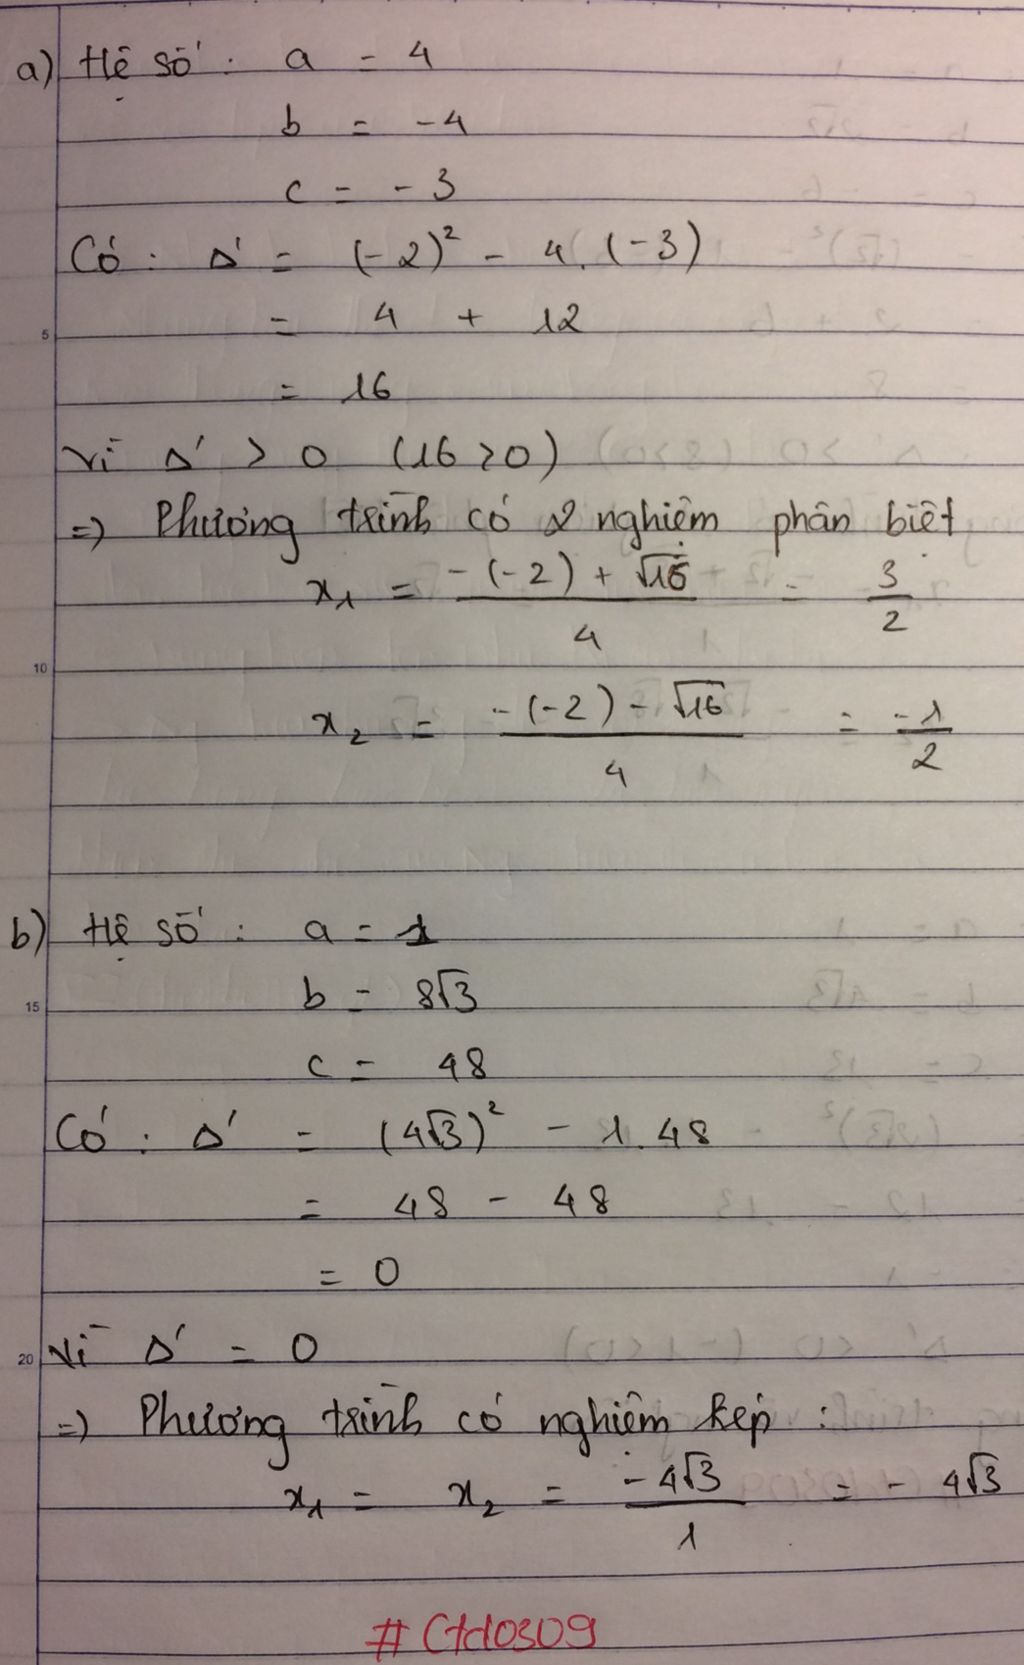 a) Hệ số: a = 4
b = -4
c = -3
Có: Δ' = (-2)² - 4.(-3)
= 4 + 12
5
= 16
Vì Δ' > 0 (16 > 0)
=> Phương trình có 2 nghiệm phân biệt
x₁ = (-(-2) + √16)/4 = 3/2
10
x₂ = (-(-2) - √16)/4 = -1/2
b) Hệ số: a = 1
b = 8√3
15
c = 48
Có: Δ' = (4√3)² - 1.48
= 48 - 48
= 0
20
Vì Δ' = 0
=> Phương trình có nghiệm kép:
x₁ = x₂ = -4√3/1 = -4√3